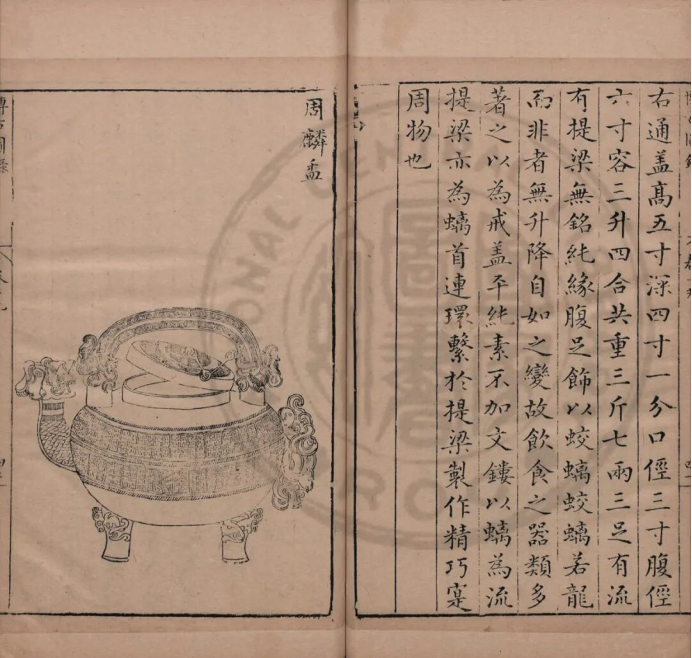 右通盖高五寸深四寸一分口徑三寸腹徑
六寸容三升四合共重三斤七兩三足有流
有提梁無銘純緣腹足飾以蛟螭蛟螭若龍
而非者無升降自如之變故飲食之器類多
著之以為戒盖平純素不加文鏤以螭為流
提梁亦為螭首連環繫於提梁製作精巧寔
周物也
周麟盉
博古圖錄